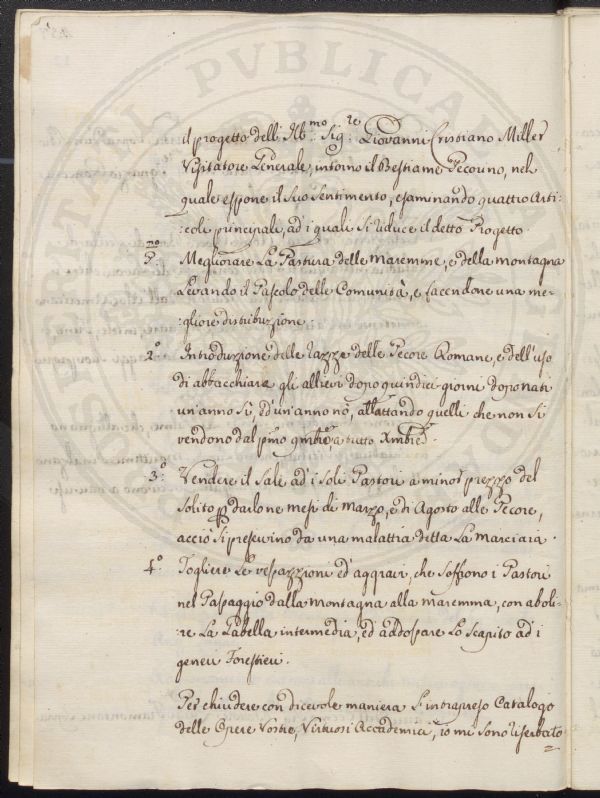 PVBLICAE
il progetto dell'Ill:mo Sig:re Giovanni Cristiano Miller
Visitatore Generale, intorno il Bestiame Pecorino, nel
quale espone il suo Sentimento, esaminando quattro Arti:
:coli principali, ad'i quali si riduce il detto Progetto.
P:mo Megliorare La Pastura delle maremme, e della montagna
Levando il Pascolo delle Comunità, e facendone una me-
:gliore distribuzione.
2:o Introduzzione delle razze delle Pecore Romane, e dell'uso
di abbacchiare gli allievi dopo quindici giorni dopo nati
un'anno si, ed'un'anno nò, allattando quelli che non si
vendono dal p:mo 9mbre, a tutto Xmbre.
3:o Vendere il Sale ad'i soli Pastori a minor prezzo del
solito p darlo ne mesi di Marzo, e di Agosto alle Pecore,
acciò si preservino da una malattia detta La Marciaia.
4:o Togliere Le vessazzioni ed'aggravi, che soffrono i Pastori
nel Passaggio dalla montagna alla maremma, con aboli:
:re La Gabella intermedia, ed'addossare Lo Scapito ad'i
generi Forestieri.
Per chiudere con dicevole maniera l'intrapreso Catalogo
delle Opere Vostre, Virtuosi Accademici, io mi sono riserbato